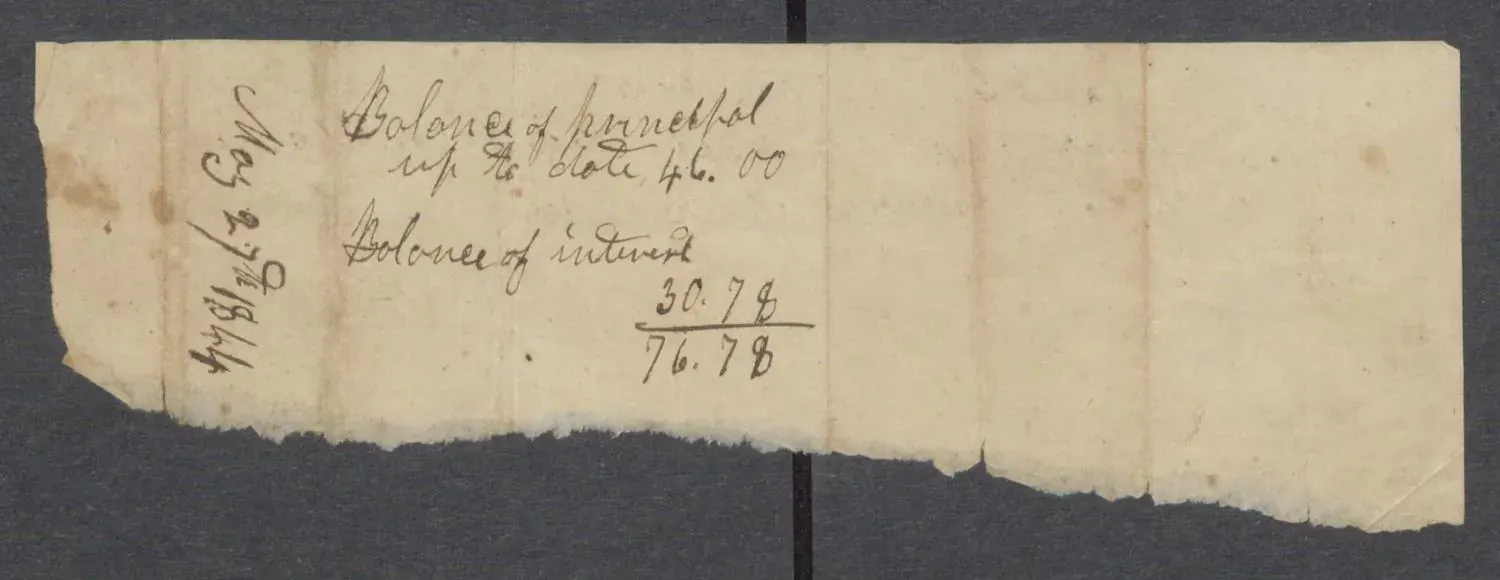 May 27th 1844
Balance of principal
up to date 46.00
Balance of interest
30.78
76.78